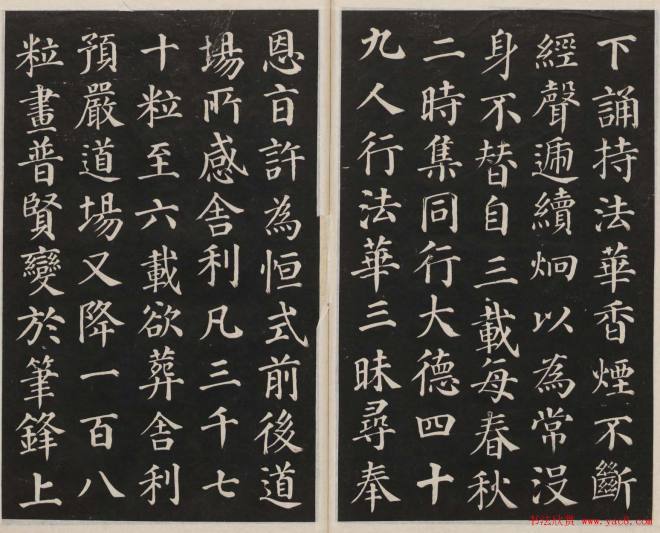 下誦持法華香煙不斷
經聲遞續炯以為常没
身不替自三載每春秋
二時集同行大德四十
九人行法華三昧尋奉
恩旨許為恒式前後道
場所感舍利凡三千七
十粒至六載欲葬舍利
預嚴道場又降一百八
粒畫普賢變於筆鋒上
书法欣赏 www.yac8.com